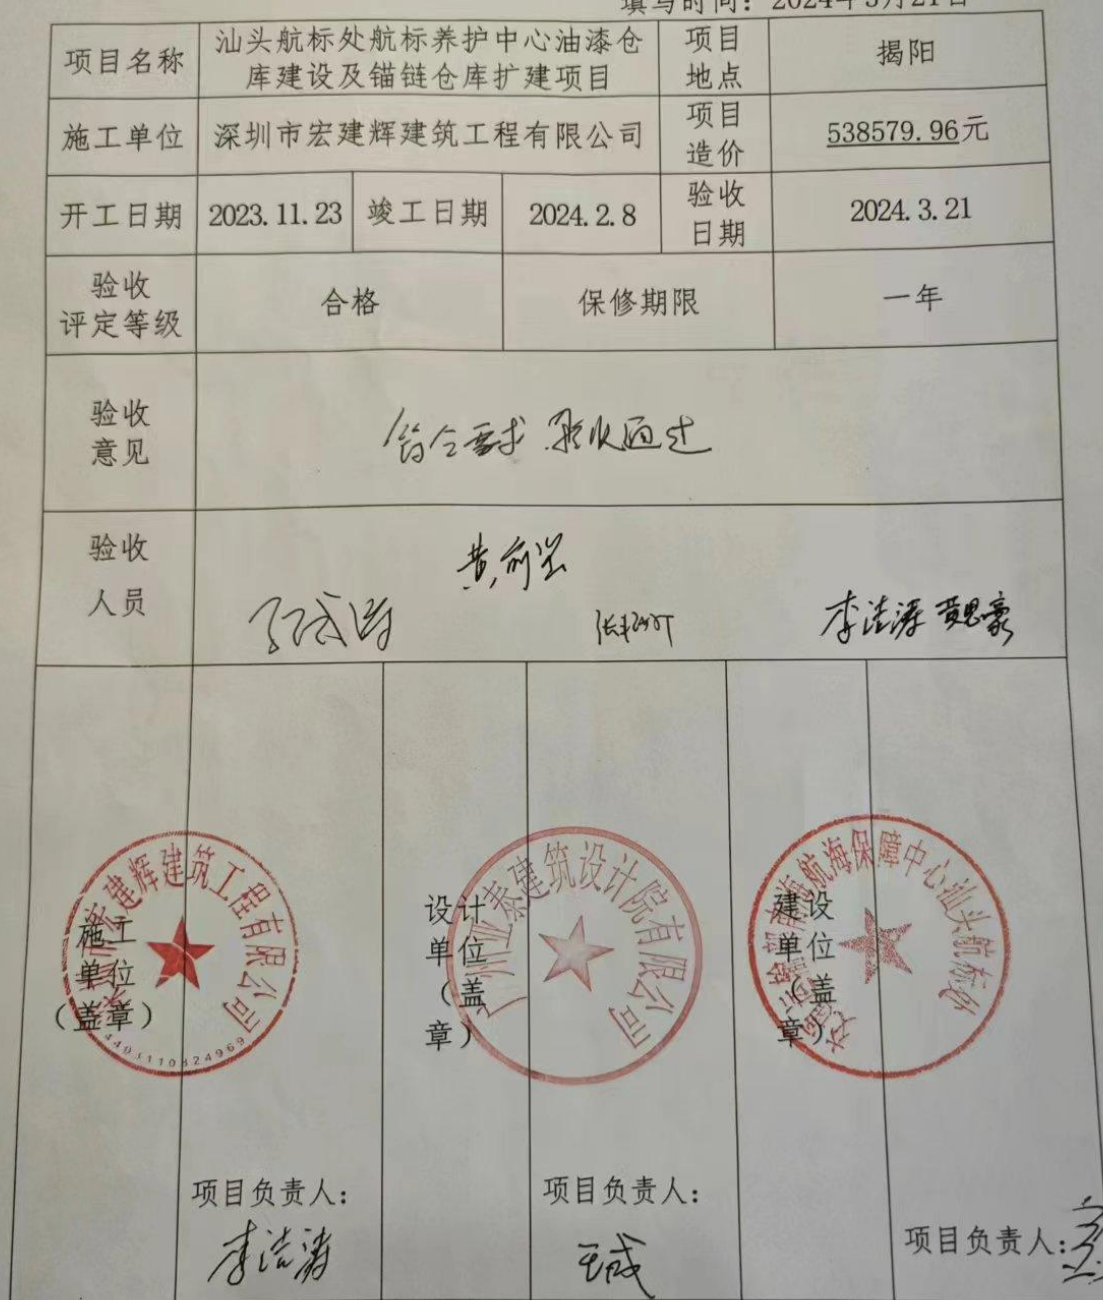 填写时间：2024年3月21日
项目名称
汕头航标处航标养护中心油漆仓
库建设及锚链仓库扩建项目
项目
地点
揭阳
施工单位
深圳市宏建辉建筑工程有限公司
项目
造价
538579.96元
开工日期
2023.11.23
竣工日期
2024.2.8
验收
日期
2024.3.21
验收
评定等级
合格
保修期限
一年
验收
意见
符合要求 验收通过
验收
人员
李洁涛 黄思豪
施工
单位
（盖章）
建辉建筑工程有限公司
设计
单位
（盖
章）
广州亚泰建筑设计院有限公司
建设
单位
（盖
章）
航海保障中心汕头航标处
项目负责人：
李洁涛
项目负责人：
项目负责人：